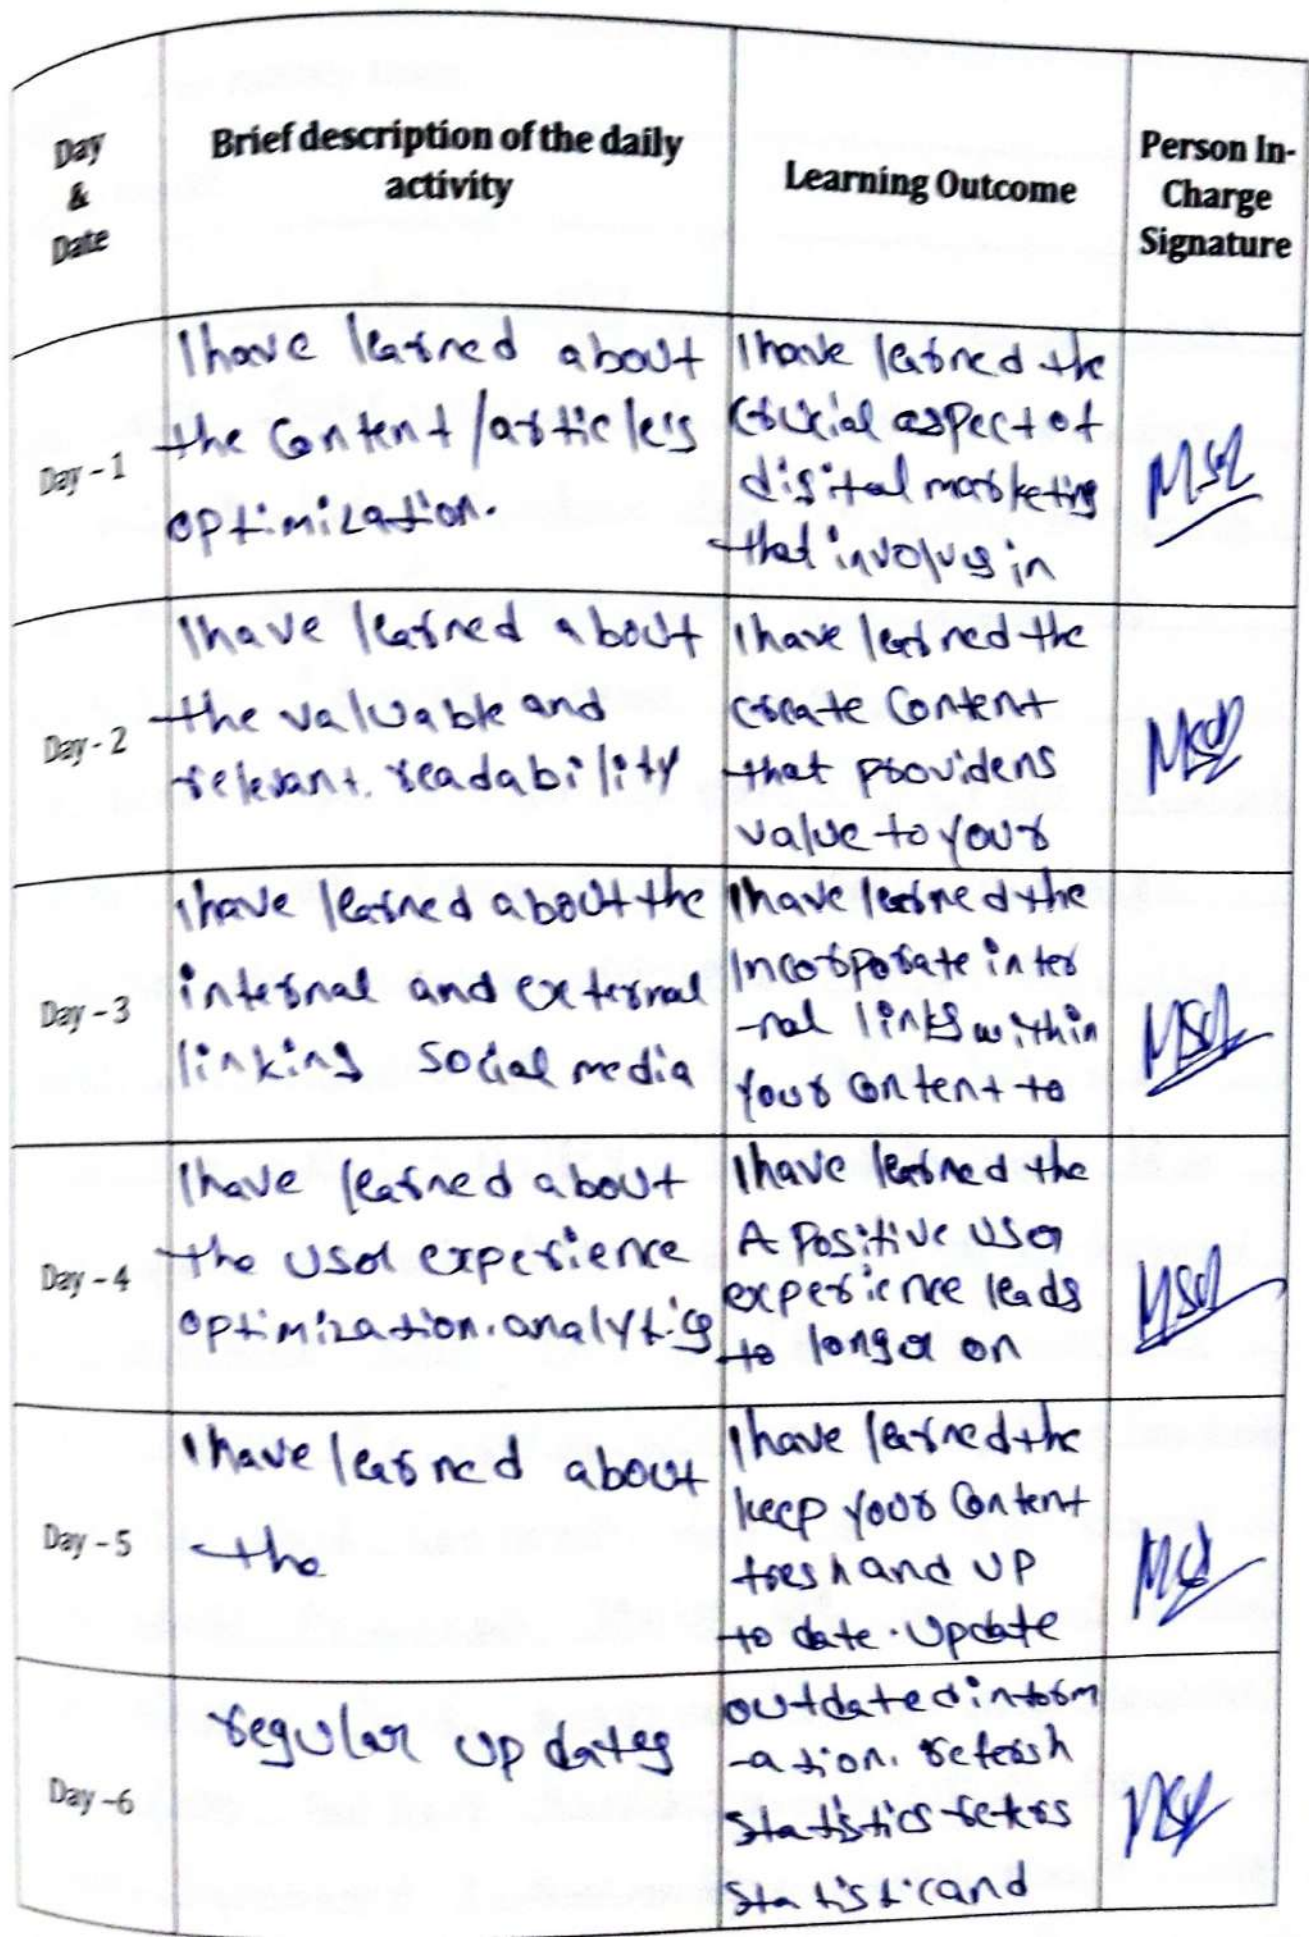 Day & Date
Brief description of the daily activity
Learning Outcome
Person In-Charge Signature
Day - 1
I have learned about
the content/article's
optimization.
I have learned the
crucial aspect of
digital marketing
that involves in
Day - 2
I have learned about
the valuable and
relevant. readability
I have learned the
create content
that providens
value to your
Day - 3
I have learned about the
internal and external
linking social media
I have learned the
Incorporate inter
-nal links within
your content to
Day - 4
I have learned about
the user experience
optimization. analytics
I have learned the
A positive user
experience leads
to longer on
Day - 5
I have learned about
the
I have learned the
keep your content
fresh and up
to date. update
Day -6
regular updates
outdated inform
-ation. refersh
statistics
statistic and